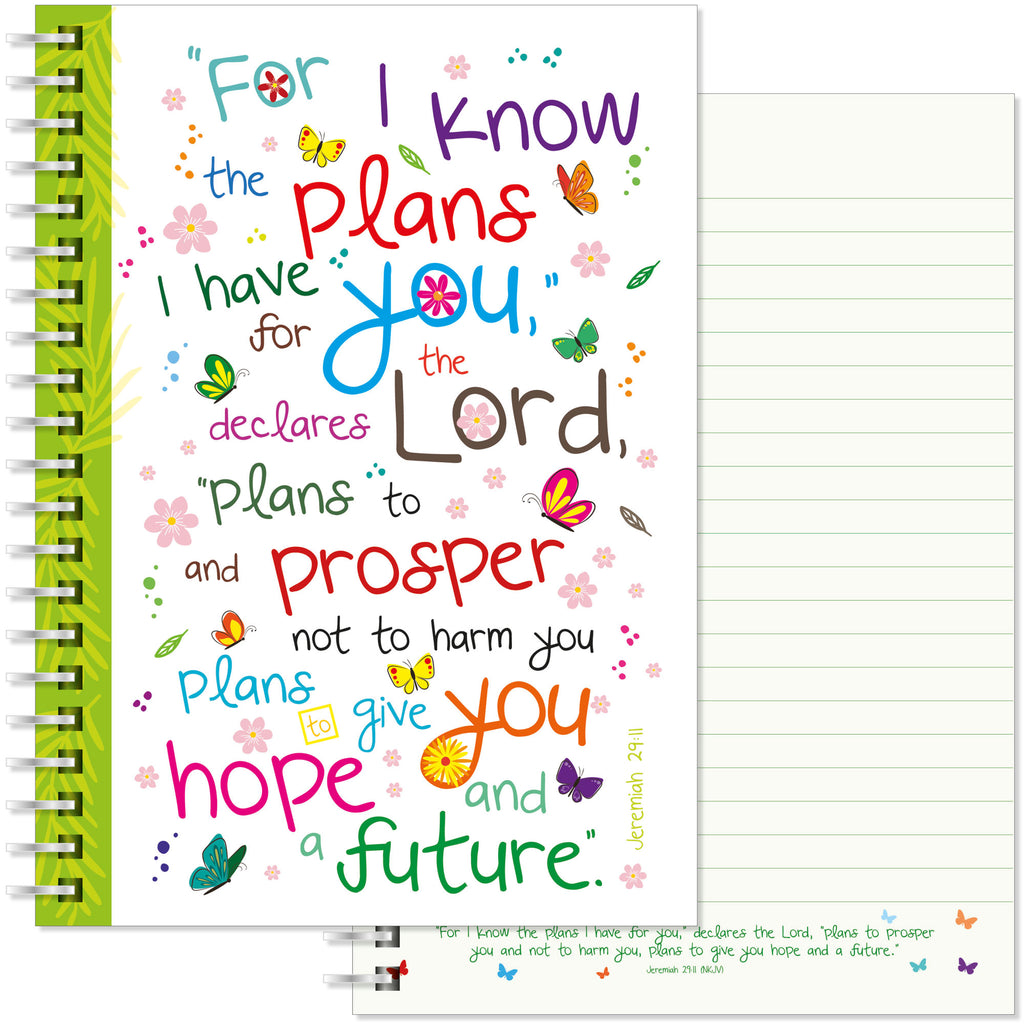 "For I know
the plans
I have
for you,"
the
declares Lord,
"plans to
and prosper
not to harm you
plans
to give you
hope and
a future".
Jeremiah 29:11
"For I know the plans I have for you," declares the Lord, "plans to prosper
you and not to harm you, plans to give you hope and a future."
Jeremiah 29:11 (NKJV)